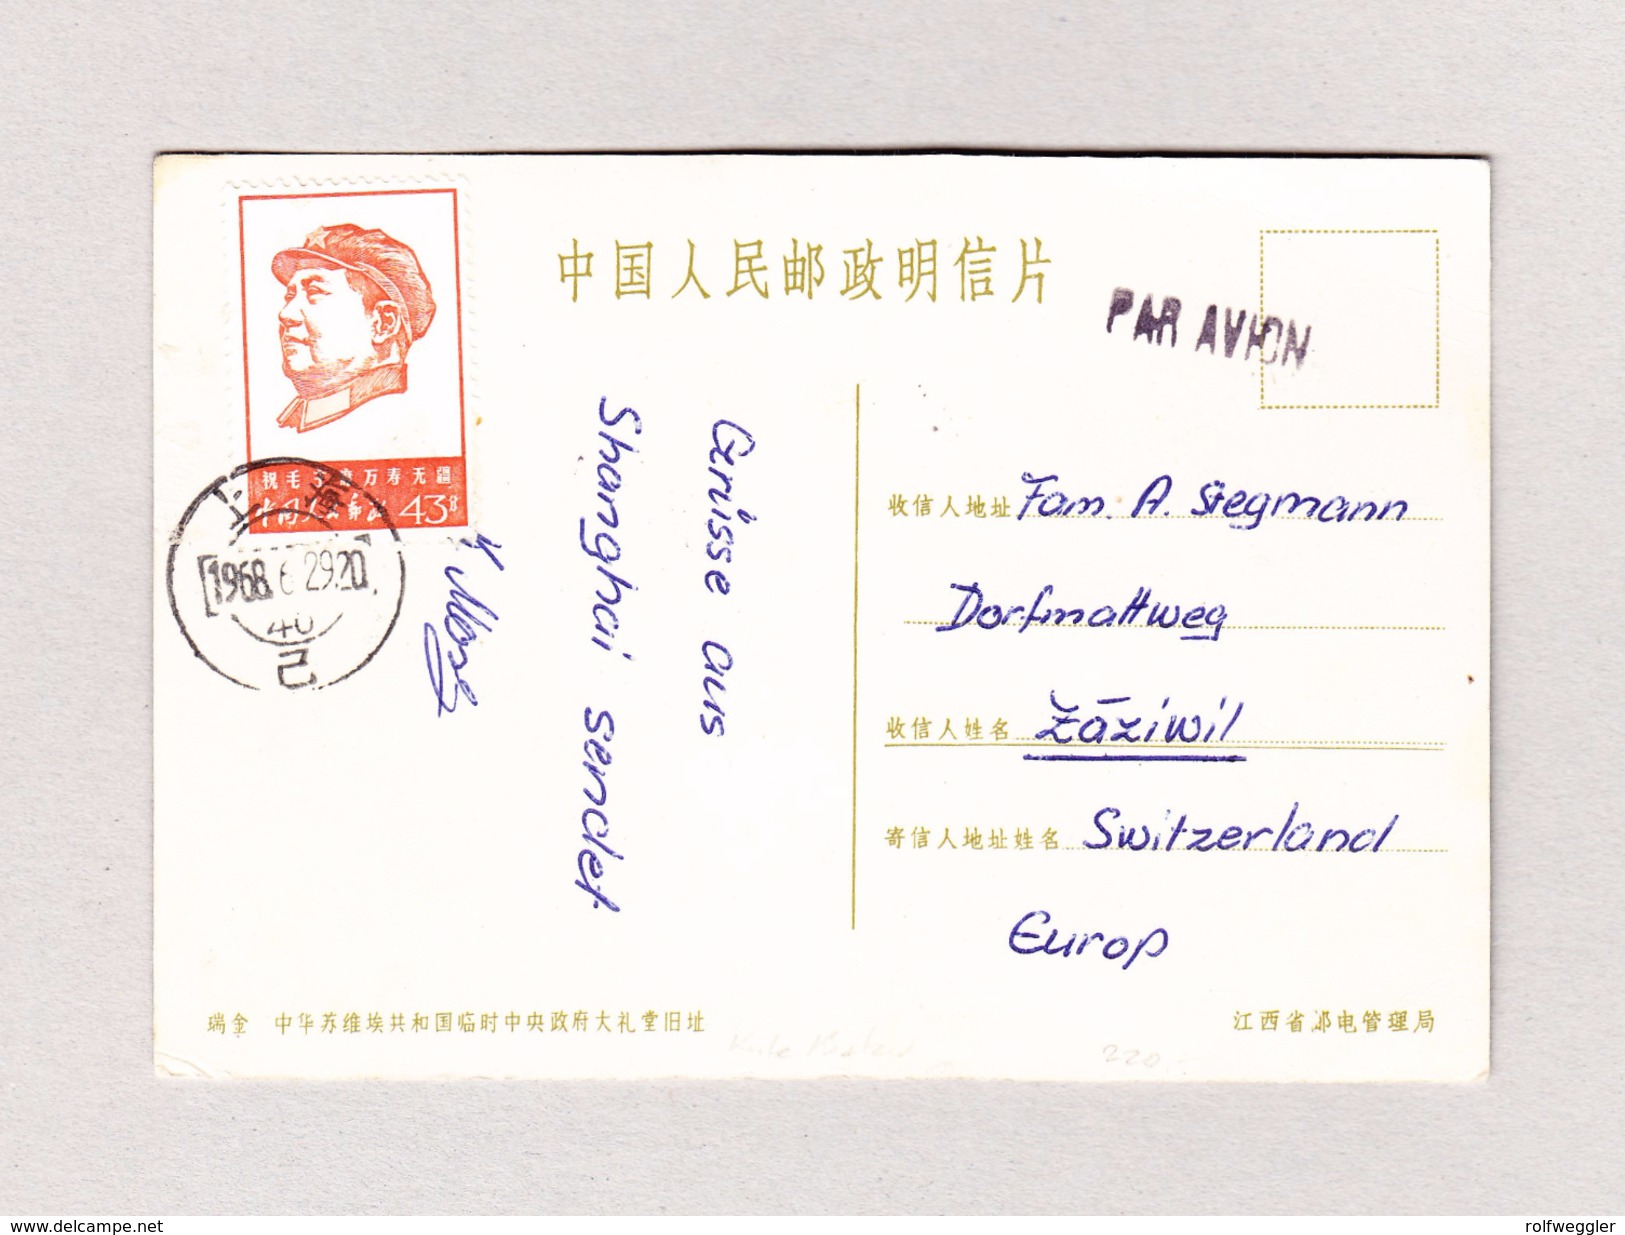 中国人民邮政明信片
PAR AVION
祝毛主席万寿无疆
中国人民邮政 43分
上海
1968.6.29.20
40
己
Grüsse aus
Shanghai sendet
收信人地址 Fam. A. Stegmann
Dorfmattweg
收信人姓名 Zäziwil
寄信人地址姓名 Switzerland
Europ
瑞金 中华苏维埃共和国临时中央政府大礼堂旧址
江西省邮电管理局
220.-
www.delcampe.net
rolfweggler